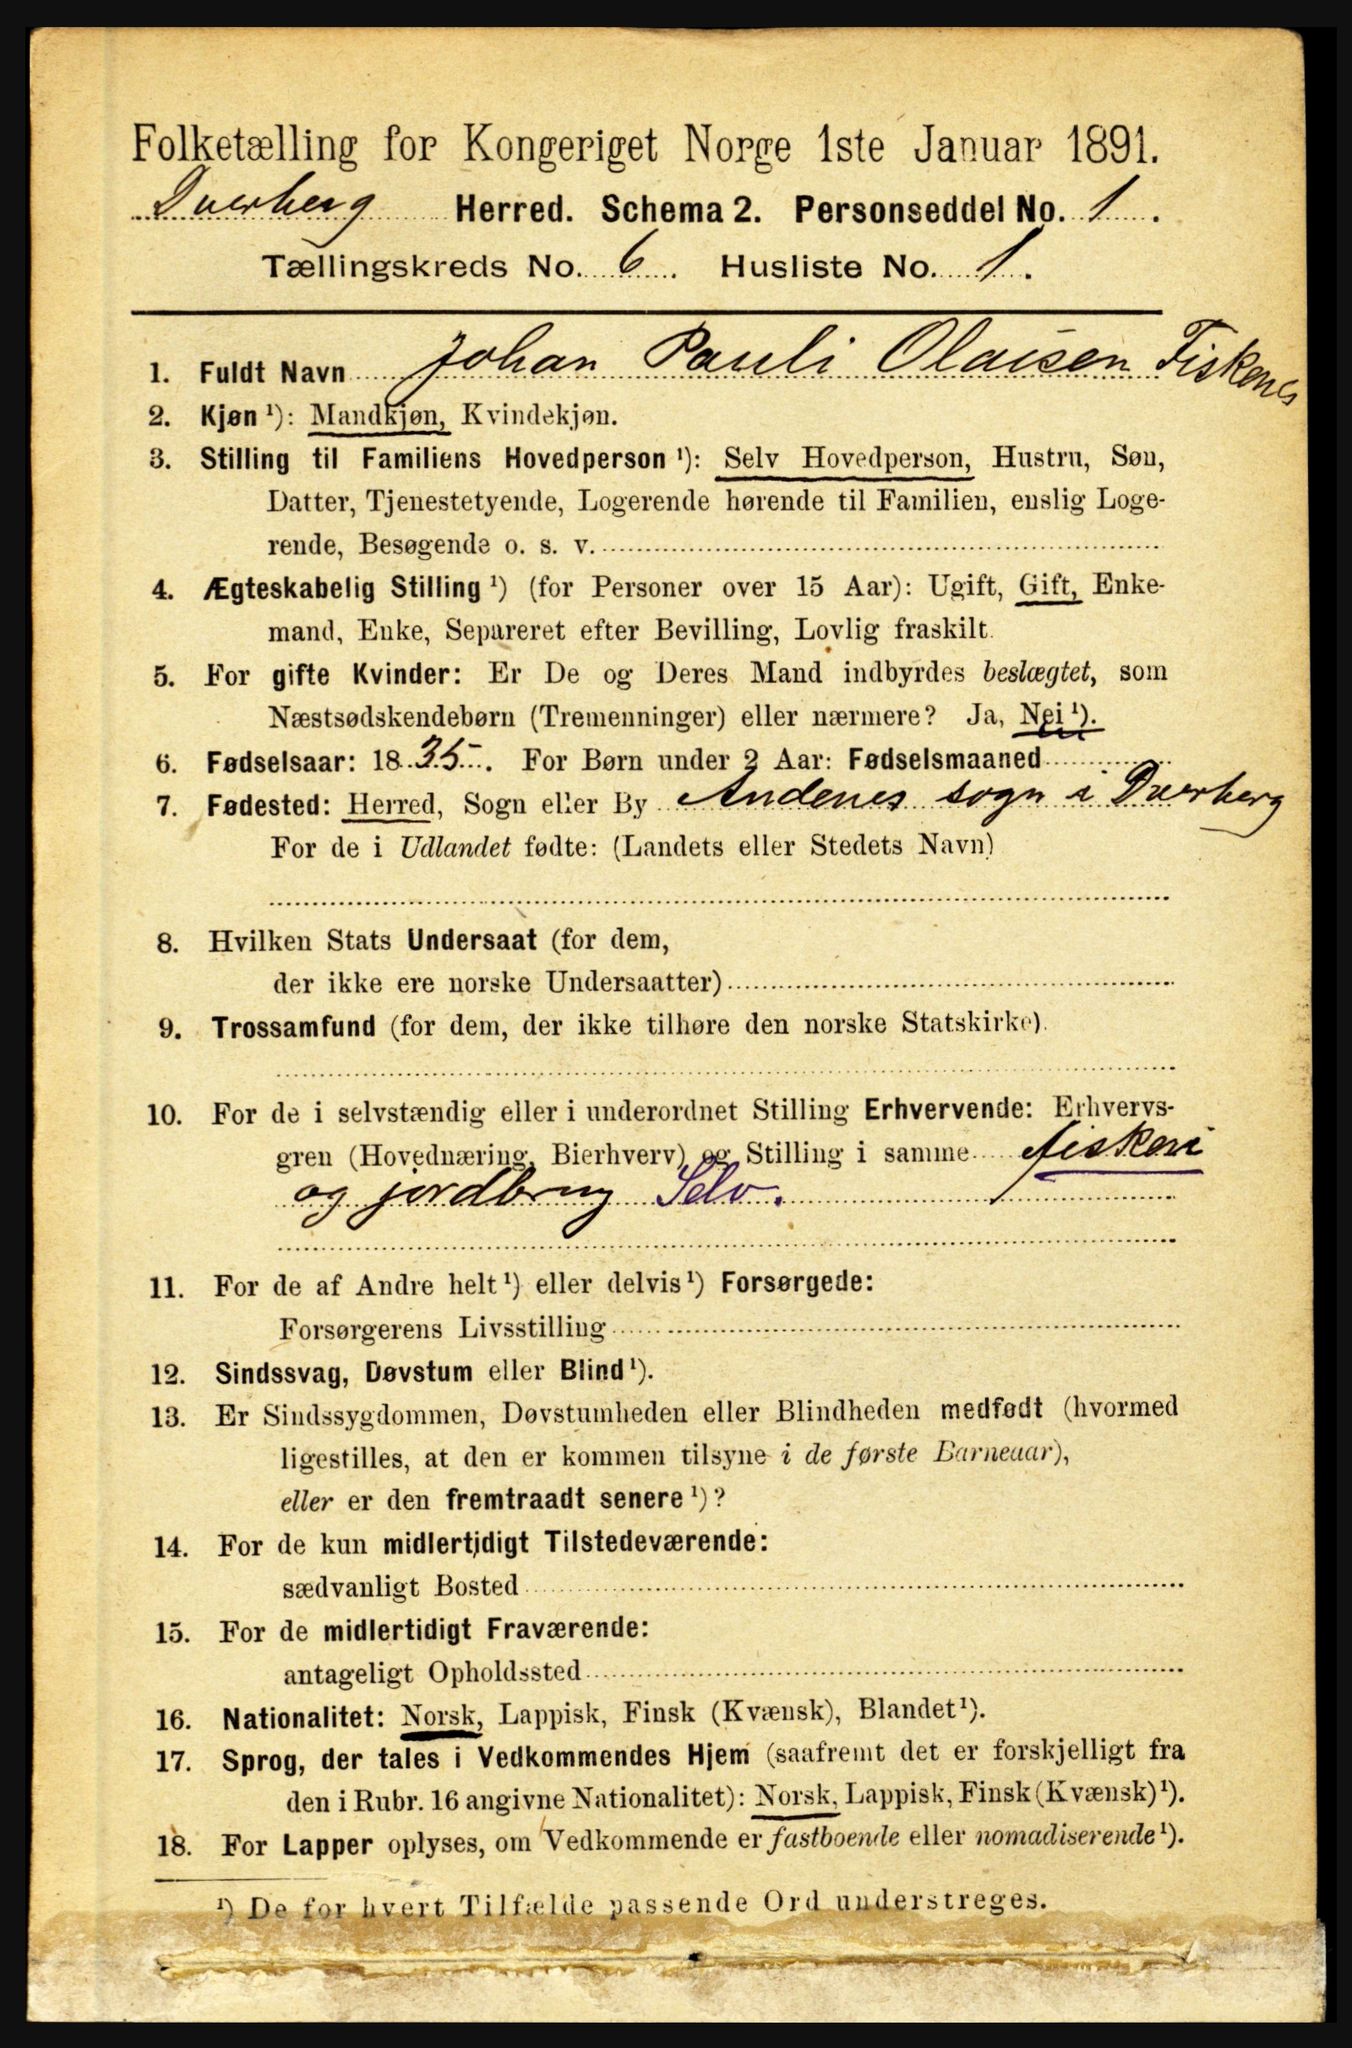 Folketælling for Kongeriget Norge 1ste Januar 1891.
Dverberg Herred. Schema 2. Personseddel No. 1.
Tællingskreds No. 6. Husliste No. 1.
1. Fuldt Navn Johan Pauli Olaisen Fiskenes
2. Kjøn ¹): Mandkjøn, Kvindekjøn.
3. Stilling til Familiens Hovedperson ¹): Selv Hovedperson, Hustru, Søn,
Datter, Tjenestetyende, Logerende hørende til Familien, enslig Loge-
rende, Besøgende o. s. v.
4. Ægteskabelig Stilling ¹) (for Personer over 15 Aar): Ugift, Gift, Enke-
mand, Enke, Separeret efter Bevilling, Lovlig fraskilt.
5. For gifte Kvinder: Er De og Deres Mand indbyrdes beslægtet, som
Næstsødskendebørn (Tremenninger) eller nærmere? Ja, Nei ¹).
6. Fødselsaar: 1835. For Børn under 2 Aar: Fødselsmaaned
7. Fødested: Herred, Sogn eller By Andenes sogn i Dverberg
For de i Udlandet fødte: (Landets eller Stedets Navn)
8. Hvilken Stats Undersaat (for dem,
der ikke ere norske Undersaatter)
9. Trossamfund (for dem, der ikke tilhøre den norske Statskirke).
10. For de i selvstændig eller i underordnet Stilling Erhvervende: Erhvervs-
gren (Hovednæring, Bierhverv) og Stilling i samme fiskeri
og jordbrug Selv.
11. For de af Andre helt ¹) eller delvis ¹) Forsørgede:
Forsørgerens Livsstilling
12. Sindssvag, Døvstum eller Blind ¹).
13. Er Sindssygdommen, Døvstumheden eller Blindheden medfødt (hvormed
ligestilles, at den er kommen tilsyne i de første Barneaar),
eller er den fremtraadt senere ¹)?
14. For de kun midlertidigt Tilstedeværende:
sædvanligt Bosted
15. For de midlertidigt Fraværende:
antageligt Opholdssted
16. Nationalitet: Norsk, Lappisk, Finsk (Kvænsk), Blandet ¹).
17. Sprog, der tales i Vedkommendes Hjem (saafremt det er forskjelligt fra
den i Rubr. 16 angivne Nationalitet): Norsk, Lappisk, Finsk (Kvænsk) ¹).
18. For Lapper oplyses, om Vedkommende er fastboende eller nomadiserende ¹).
¹) De for hvert Tilfælde passende Ord understreges.